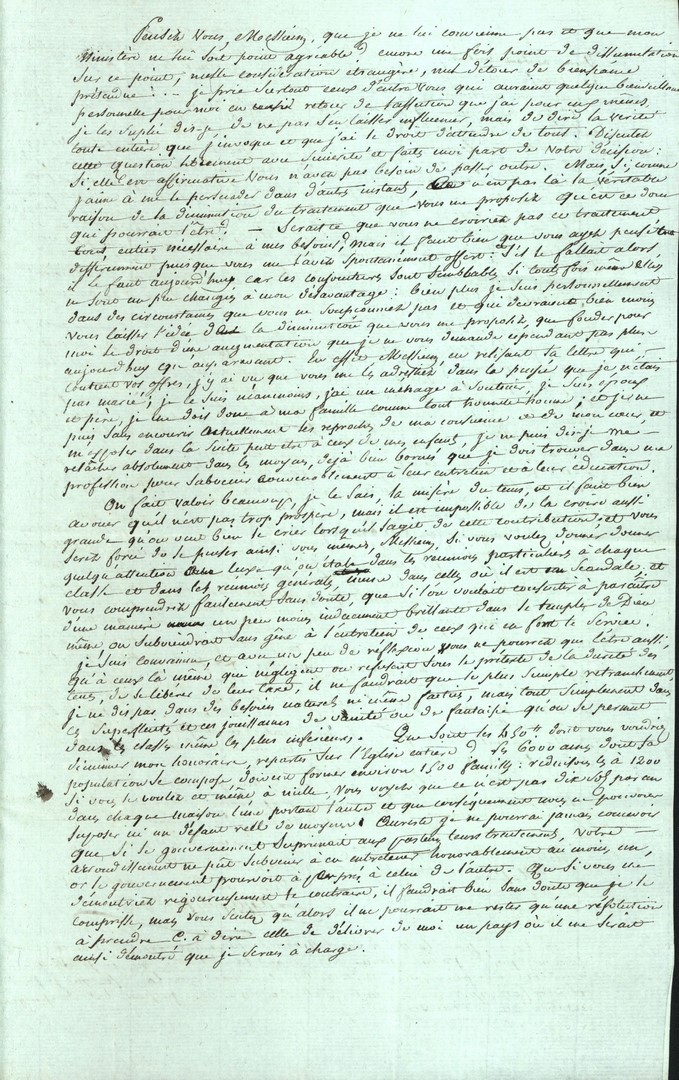 Pensez Vous, Messieurs, que je ne lui convienne pas et que mon
Ministère ne lui soit point agréable? encore une fois point de dissimulation
sur ce point, nulle considération étrangère, nul détour de bienséance
prétendue! — je prie surtout ceux d'entre vous qui auraient quelque bienveillance
personnelle pour moi en retour de l'affection que j'ai pour eux mêmes,
je les suplie dis-je, de ne pas s'en laisser influencer, mais de dire la vérité
toute entière que j'invoque et que j'ai le droit d'attendre de tous. Disputez
cette question librement avec sincérité et faites moi part de votre décision:
Si elle est affirmative vous n'avez pas besoin de passer outre. Mais si, comme
j'aime à me le persuader dans d'autres instans, ce n'en pas là la véritable
raison de la diminution du traitement que vous me proposez qu'est ce donc
qui pourrait l'être? — Serait ce que vous ne croiriez pas ce traitement
entier nécessaire à mes besoins? mais il faut bien que vous ayez pensé
différemment puisque vous me l'avez spontanément offert: S'il le fallait alors,
il le faut aujourd'huy car les conjonctures sont semblables si toutefois même elles
ne sont un peu changées à mon désavantage: bien plus je suis personnellement
dans des circonstances que vous ne soupçonnez pas et qui devraient bien moins
vous laisser l'idée de la diminution que vous me proposez, que fonder pour
moi le droit d'une augmentation que je ne vous demande cependant pas plus
aujourd'huy qu'auparavant. En effet Messieurs en relisant la lettre qui
contient vos offres, j'y ai vu que vous me les adressiez dans la pensée que je n'étais
pas marié; je le suis néanmoins, j'ai un ménage à soutenir, je suis époux
et père, je me dois donc à ma famille comme tout honnête homme; et je ne
puis sans encourir actuellement les reproches de ma conscience et de mon cœur, et
m'exposer dans la suite peut être à ceux de mes enfans, je ne puis dis-je me
relâcher absolument dans les moyens, déjà bien bornés que je dois trouver dans ma
profession pour subvenir convenablement à leur entretien et à leur éducation.
On fait valoir beaucoup, je le sais, la misère du tems, et il faut bien
avouer qu'il n'est pas trop prospère, mais il est impossible de la croire aussi
grande qu'on veut bien le crier lorsqu'il s'agit de cette contribution, et vous
serez forcé de le penser ainsi vous mêmes, Messieurs, si vous voulez donner
quelqu'attention au luxe qu'on étale dans les réunions particulières à chaque
classe et dans les réunions générales même dans celles où il est un scandale. et
vous comprendrez facilement sans doute que si l'on voulait consentir à paraître
d'une manière un peu moins indécemment brillante dans le temple de Dieu
même on subviendrait sans gêne à l'entretien de ceux qui en font le service.
je suis convaincu, et avec un peu de réflexion vous ne pourrez que l'être aussi,
qu'à ceux là même qui négligent ou refusent sous le prétexte de la dureté des
tems, de se libérer de leur taxe, il ne faudrait que le plus simple retranchement
je ne dis pas dans des besoins naturels ni même factices, mais tout simplement dans
ces superfluités et ces jouissances de vanité ou de fantaisie qu'on se permet
dans les classes même les plus inférieures. Que sont les 450# dont vous voudriez
diminuer mon honoraire, répartis sur l'Eglise entière? Les 6000 ames dont sa
population se compose doivent former environ 1500 familles: réduisons les à 1200
si vous le voulez et même à mille. Vous voyez que ce n'est pas dix sol par an
dans chaque maison l'une portant l'autre et que conséquemment vous ne pouvez
supposer ici un défaut réel de moyens. Au reste je ne pourrai jamais concevoir
que si le gouvernement suprimait aux pasteurs leurs traitemens, votre
arrondissement ne put subvenir à en entretenir honorablement au moins un,
or le gouvernement pourvoit à peu près à celui de l'autre. Que si vous me
démontriez rigoureusement le contraire, il faudrait bien sans doute que je le
comprisse, mais vous sentez qu'alors il ne pourrait me rester qu'une résolution
à prendre C. à dire celle de délivrer de moi un pays où il me serait
ainsi démontré que je serais à charge.